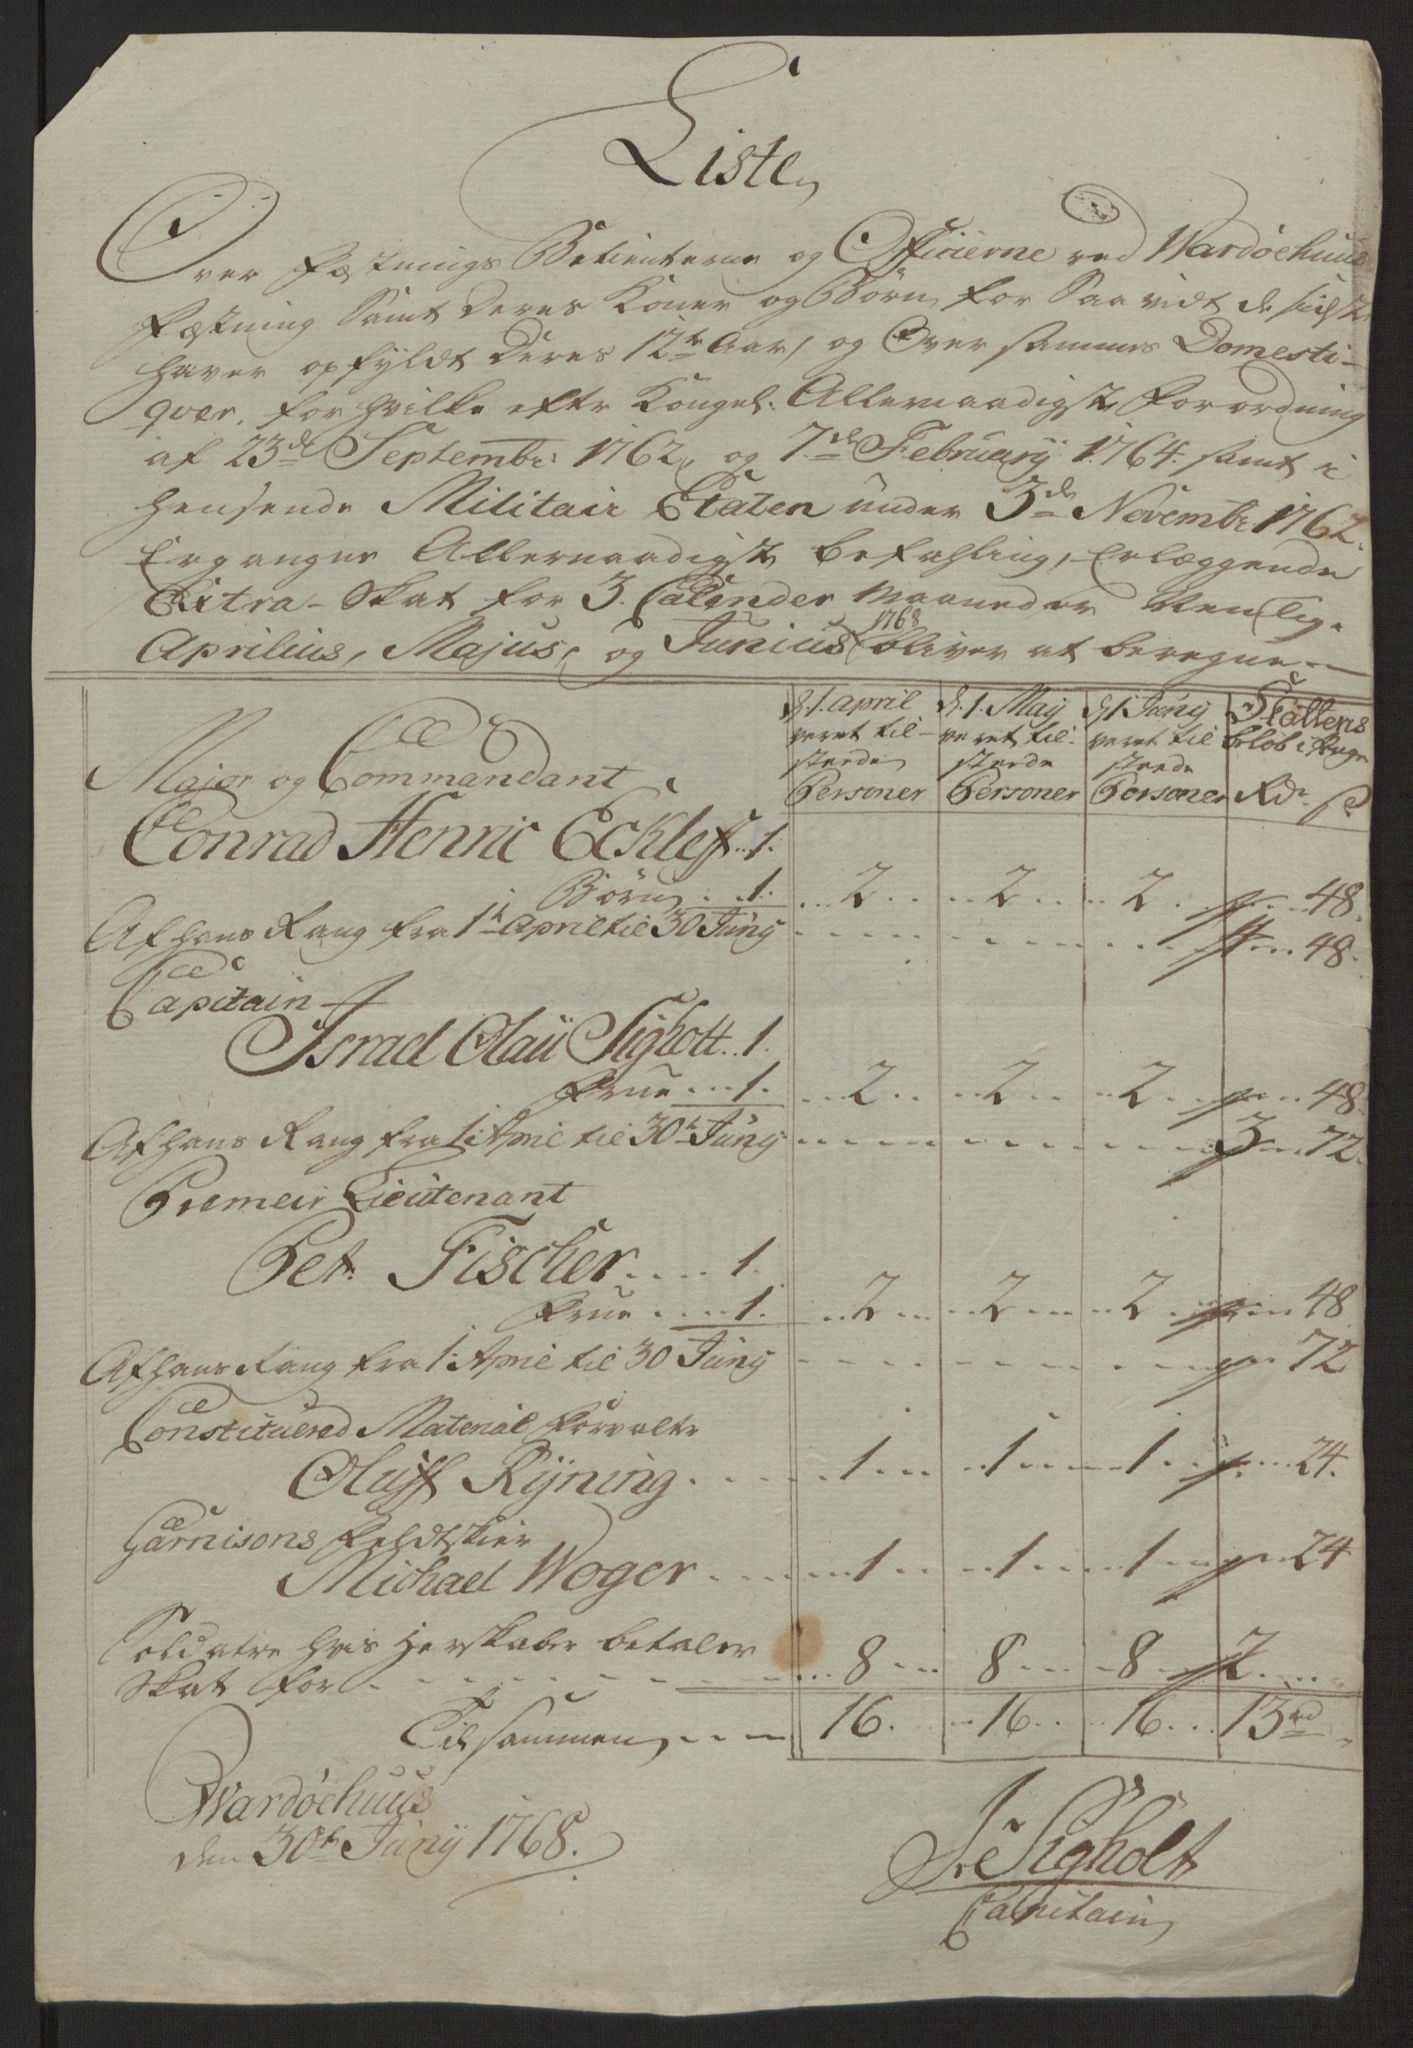 Liste
Over Fæstnings Betienterne og Officierne ved Wardöehuus
Fæstning Samt deres Koner og Börn, for Saavidt de sidste
haver opfyldt deres 12te Aar, og Over sammes Domesti-
qver, for hvilke efter Kongel: Allernaadigste Forordning
af 23de Septembr: 1762, og 7de February 1764 samt i
henseende Militair Etaten under 3de Novembr: 1762.
Ergangne Allernaadigste befahling, Erlæggende
Extra-Skat for 3 Calender Maaneder Nemlig.
Aprilius, Majus, og Junius 1768 bliver at beregne
d. 1. april d. 1. May d. 1 Juny Skattens
veret til- veret til- veret til belöb i Penge
stæde stæde stæde
Personer Personer Personer Rdr. s
Major og Commandant
Conrad Henric Ecklef .. 1.
Börn .. 1. .. 2 .. 2 .. 2 .. 48.
Af hans Rang fra 1te April til 30 Juny 4 .. 48.
Capitain
Israel Olaii Sigholt .. 1.
Frue ... 1. .. 2 .. 2 .. 2 .. 48.
Af hans Rang fra 1 April til 30te Juny 3 .. 72.
Premeir Lieutenant
Pet. Fischer .... 1.
Frue .... 1. .. 2 .. 2 .. 2 .. 48
Af hans Rang fra 1. April til 30 Juny 72
Constituered Material Forvalter
Oluff Ryning .... 1 .. 1 .. 1 .. 24.
Garnisons Feldtskier
Michael Woger .... 1 .. 1 .. 1 .. 24
Soldatre hvis Herskaber betaler
Skat for .... 8 .. 8 .. 8 .. 2 ..
Tilsammen ... 16. .. 16 .. 16 .. 13rd
Wardöehuus
den 30te Juny 1768.
I: Sigholt
Capitain